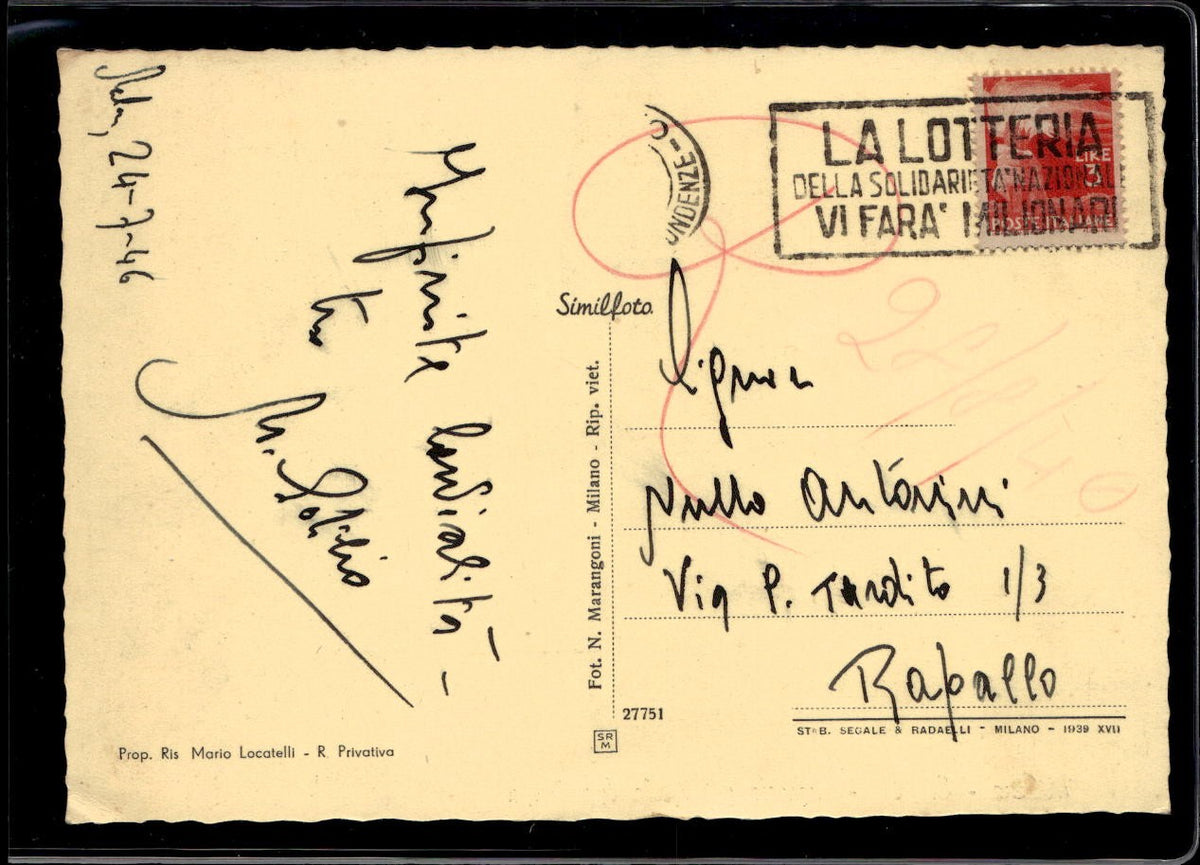 24-7-46
cordialità -
tua
LA LOTTERIA
DELLA SOLIDARIETA' NAZIONALE
VI FARA' MILIONARI
LIRE
3
POSTE ITALIANE
ONDENZE-
Similfoto
Signora
Nullo Antonini
Via P. Tardito 1/3
Rapallo
Fot. N. Marangoni - Milano - Rip. viet.
27751
SR
M
STAB. SEGALE & RADAELLI - MILANO - 1939 XVII
Prop. Ris Mario Locatelli - R. Privativa